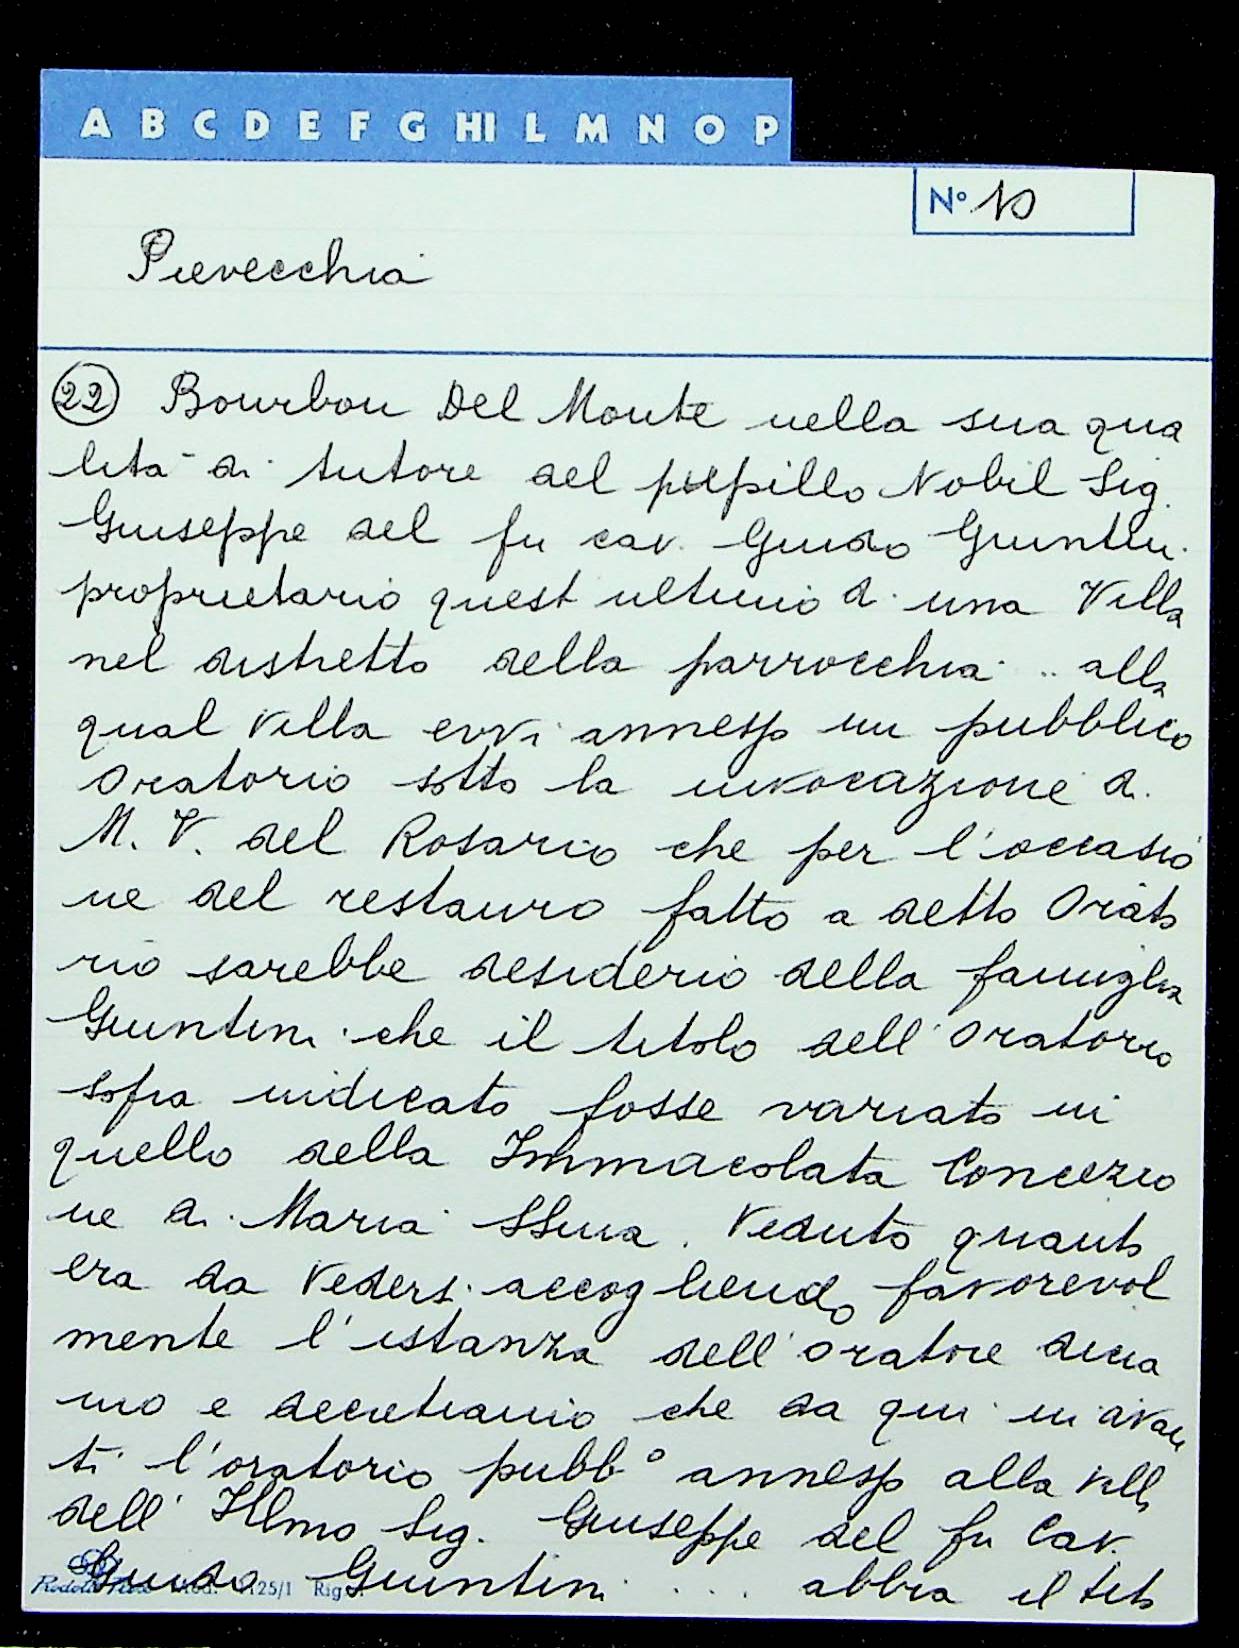 A B C D E F G HI L M N O P
N° 10
Pievecchia
22 Bourbon Del Monte nella sua qua
lità di tutore del pupillo Nobil Sig.
Giuseppe del fu cav. Guido Giuntini
proprietario quest ultimo di una Villa
nel distretto della parrocchia .. alla
qual Villa evvi annesso un pubblico
Oratorio sotto la invocazione di
M. V. del Rosario che per l'occasio
ne del restauro fatto a detto Orato
rio sarebbe desiderio della famiglia
Giuntini che il titolo dell'Oratorio
sopra indicato fosse variato in
quello della Immacolata Concezio
ne di Maria SSma. Veduto quanto
era da Vedersi accogliendo favorevol
mente l'istanza dell'Oratore dicia
mo e decretiamo che da qui in avan
ti l'oratorio pubb° annesso alla Villa
dell'Illmo Sig. Giuseppe del fu Cav.
Guido Giuntini . . . abbia il tito
125/1 Rig